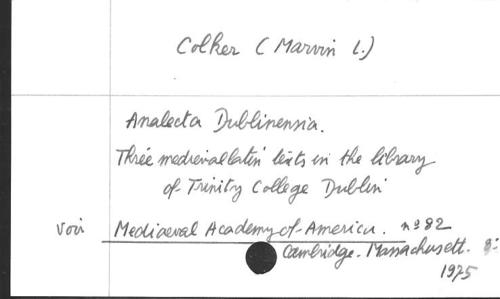 Colker (Marvin L.)
Analecta Dublinensia.
Three medieval latin texts in the library
of Trinity College Dublin
voir Mediaeval Academy of America. nº 82
Cambridge. Massachusett. 8º
1975